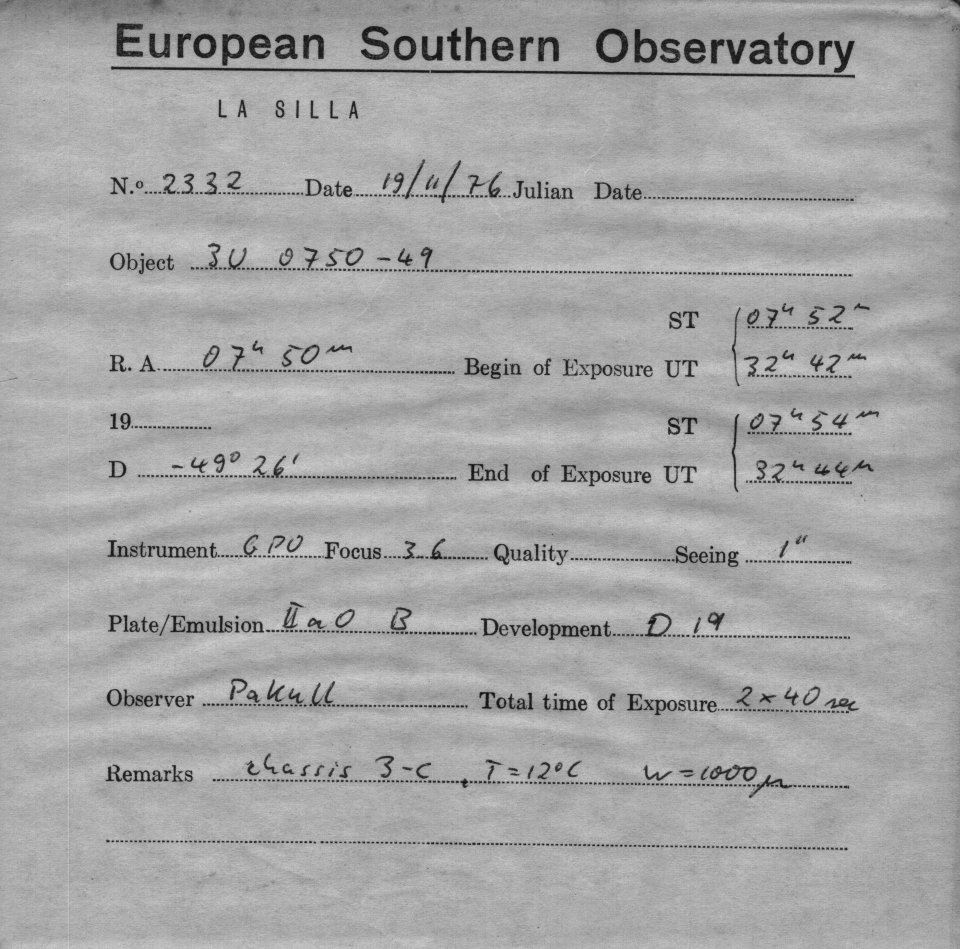 European Southern Observatory
LA SILLA
N.º 2332 Date 19/11/76 Julian Date
Object 3U 0750-49
ST 07h 52m
R. A. 07h 50m Begin of Exposure UT 32h 42m
19 ST 07h 54m
D -49° 26' End of Exposure UT 32h 44m
Instrument GPO Focus 3.6 Quality Seeing 1"
Plate/Emulsion IIaO B Development D 19
Observer Pakull Total time of Exposure 2×40 sec
Remarks chassis 3-C, T=12°C W=1000μ